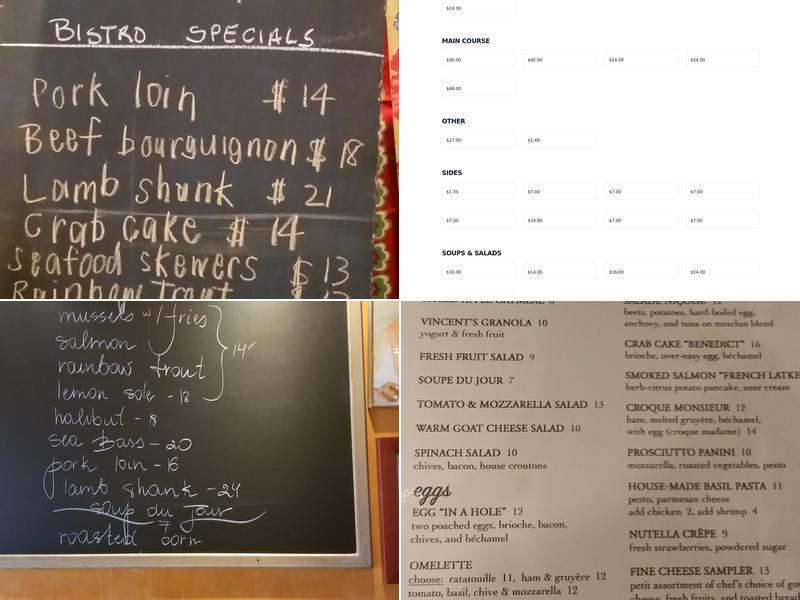 BISTRO SPECIALS
Pork loin $14
Beef bourguignon $18
Lamb shank $21
Crab cake $14
Seafood skewers $13
Rainbow Trout
$14.00
MAIN COURSE
$30.00 $42.00 $24.00 $24.00
$68.00
OTHER
$27.95 $1.45
SIDES
$1.35 $7.00 $7.00 $7.00
$7.00 $18.00 $7.00 $7.00
SOUPS & SALADS
$18.00 $14.00 $16.00 $24.00
mussels w/ fries
salmon
14
rainbow trout
lemon sole - 18
halibut - 18
sea Bass - 20
pork loin - 16
lamb shank - 24
soup du jour
7
roasted corn
VINCENT'S GRANOLA 10
yogurt & fresh fruit
FRESH FRUIT SALAD 9
SOUPE DU JOUR 7
TOMATO & MOZZARELLA SALAD 13
WARM GOAT CHEESE SALAD 10
SPINACH SALAD 10
chives, bacon, house croutons
eggs
EGG "IN A HOLE" 12
two poached eggs, brioche, bacon,
chives, and béchamel
OMELETTE
choose: ratatouille 11, ham & gruyère 12
tomato, basil, chive & mozzarella 12
SALADE NIÇOISE 12
beets, potatoes, hard-boiled egg,
anchovy, and tuna on mesclun blend
CRAB CAKE "BENEDICT" 16
brioche, over-easy egg, béchamel
SMOKED SALMON "FRENCH LATKE
herb-citrus potato pancake, sour cream
CROQUE MONSIEUR 12
ham, melted gruyère, béchamel,
with egg (croque madame) 14
PROSCIUTTO PANINI 10
mozzarella, roasted vegetables, pesto
HOUSE-MADE BASIL PASTA 11
pesto, parmesan cheese
add chicken 2, add shrimp 4
NUTELLA CRÊPE 9
fresh strawberries, powdered sugar
FINE CHEESE SAMPLER 13
petit assortment of chef's choice of
cheese, fresh fruits, and toasted bread